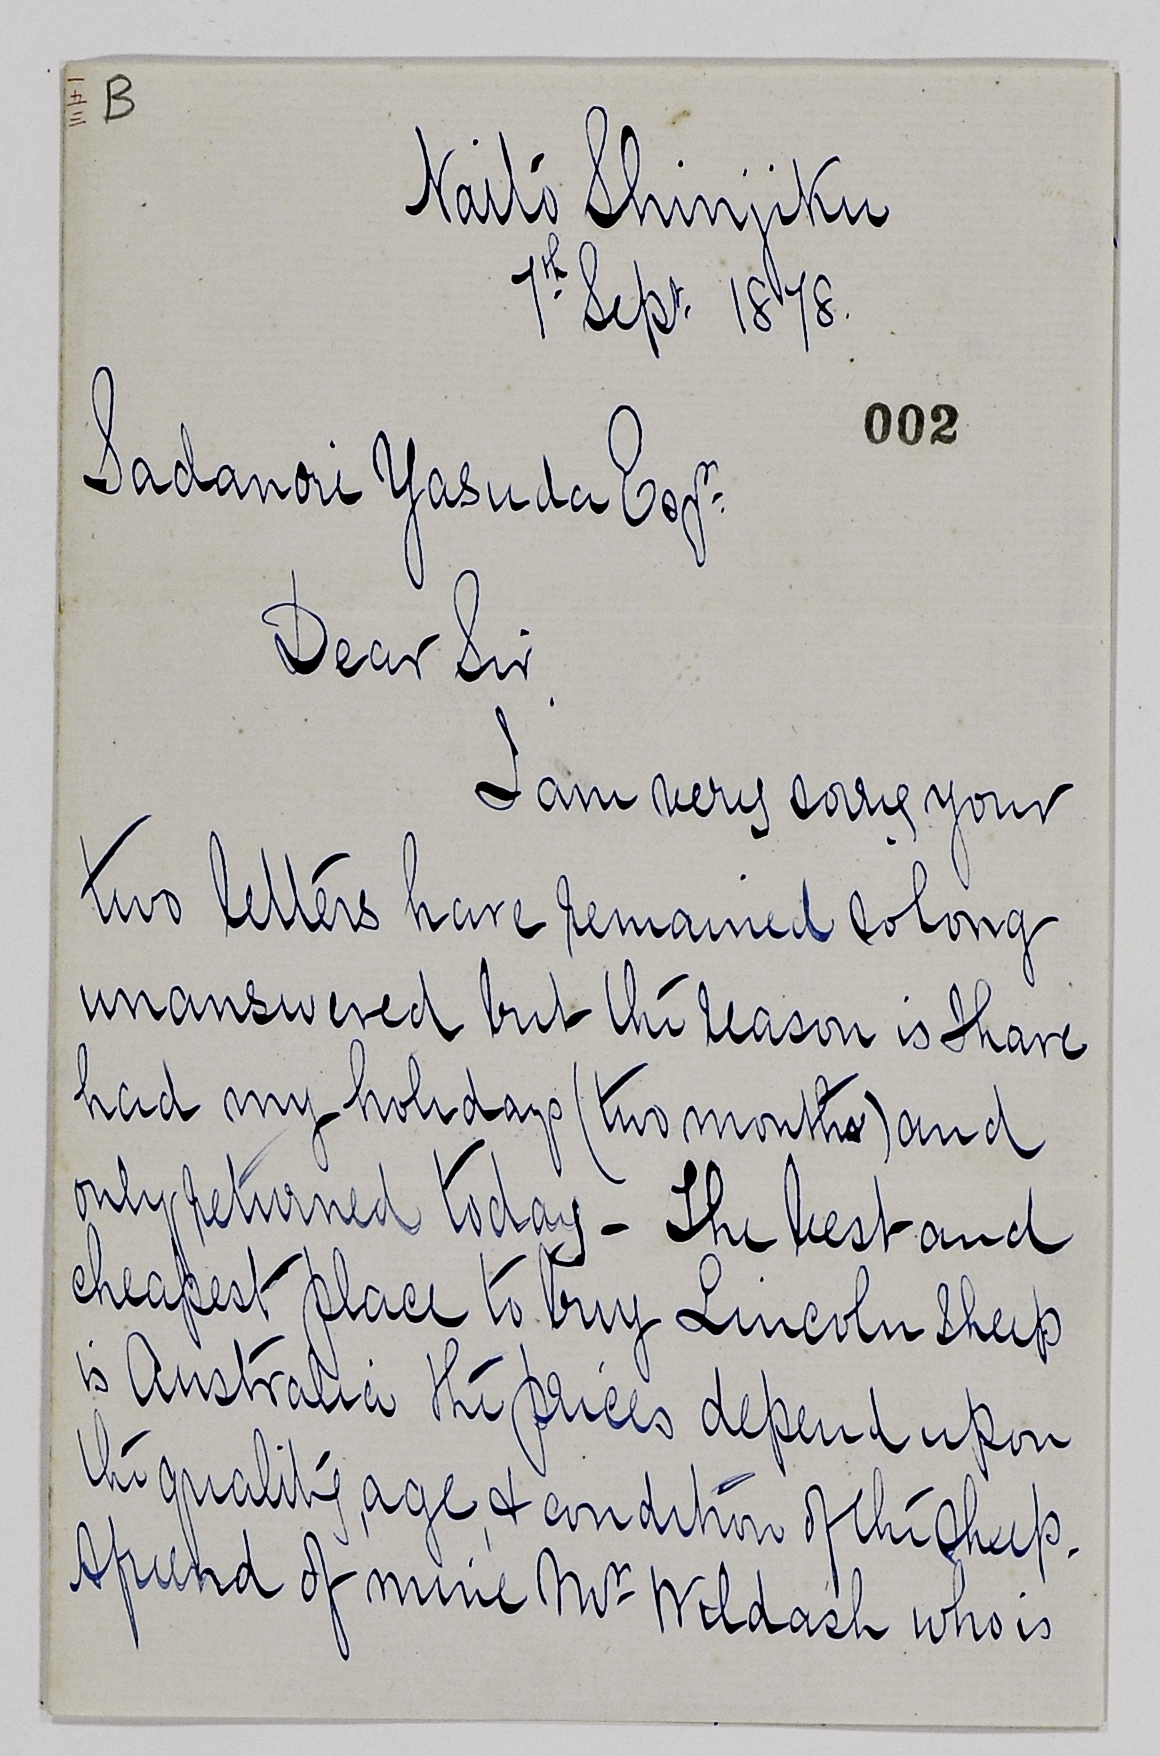 一五三 B
Naito Shinjiku
7th Sept. 1878.
002
Sadanori Yasuda Esqr.
Dear Sir
I am very sorry your
two letters have remained so long
unanswered but the reason is I have
had my holidays (two months) and
only returned today - The best and
cheapest place to buy Lincoln sheep
is Australia the prices depend upon
the quality, age, & condition of the sheep.
A friend of mine Mr who is